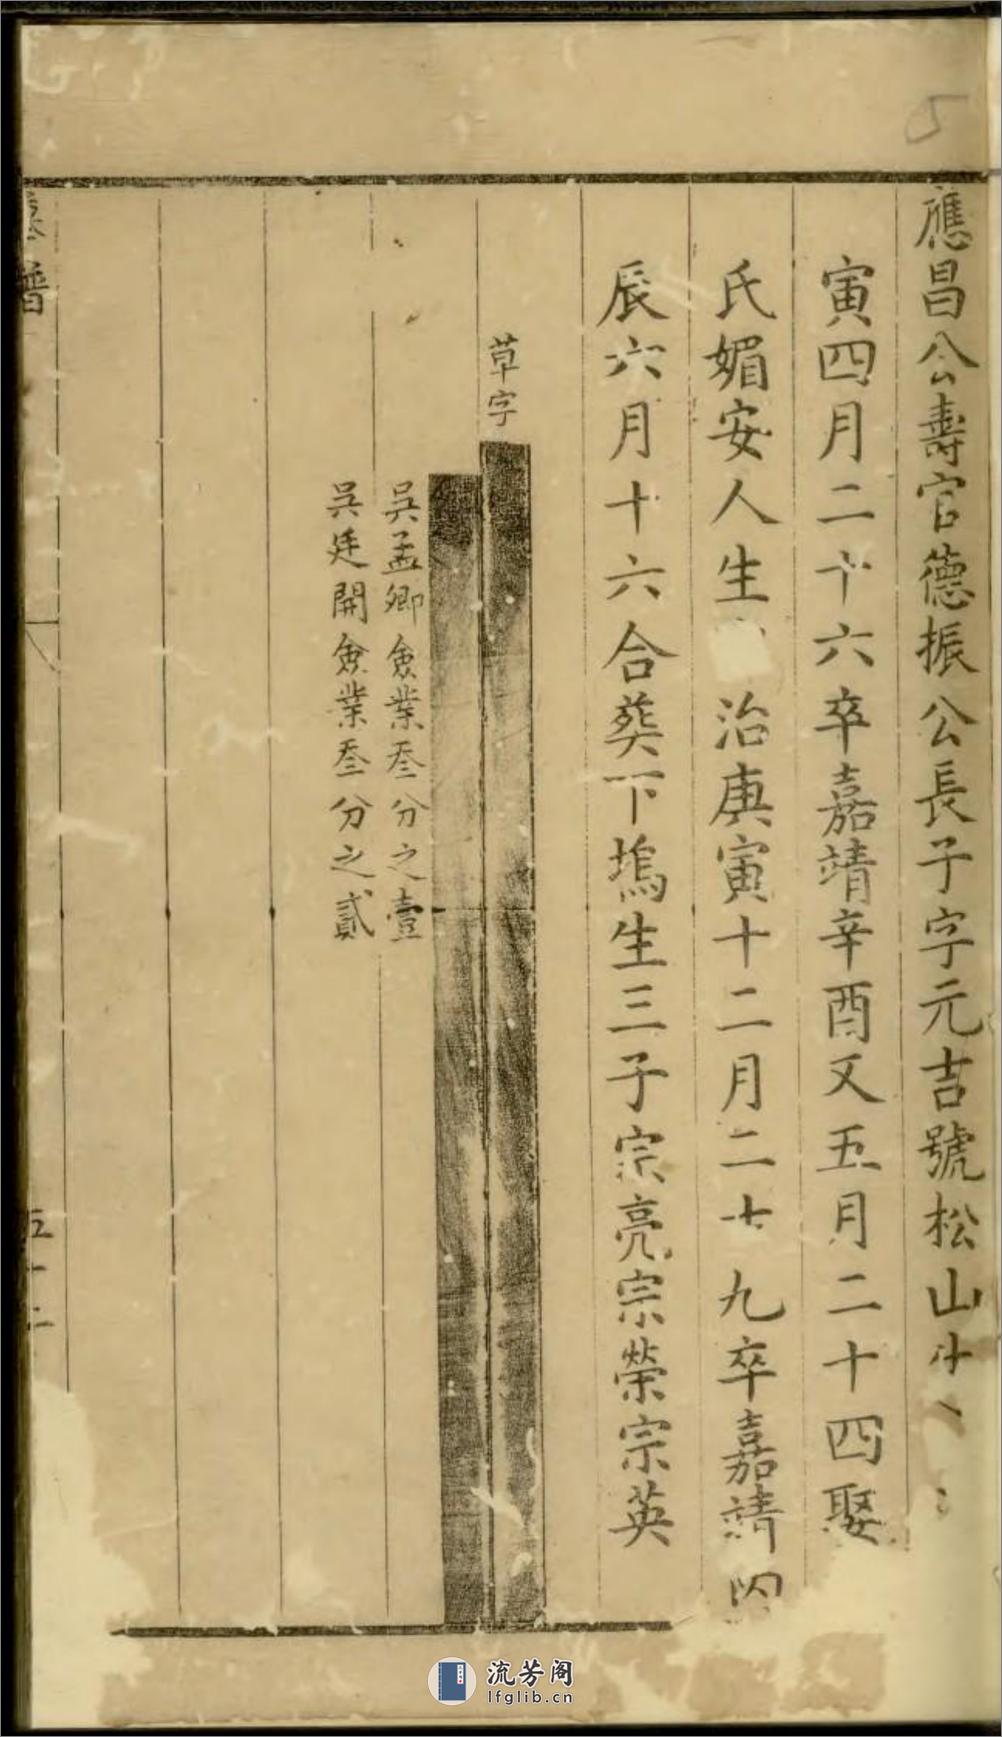 應昌公壽官德振公長子字元吉號松山生
寅四月二十六卒嘉靖辛酉又五月二十四娶
氏媚安人生 治庚寅十二月二十九卒嘉靖
辰六月十六合葬下塢生三子宗亮宗榮宗英
草字
吳孟卿僉業叁分之壹
吳廷開僉業叁分之貳
墓譜
五十二
5
流芳阁
lfglib.cn